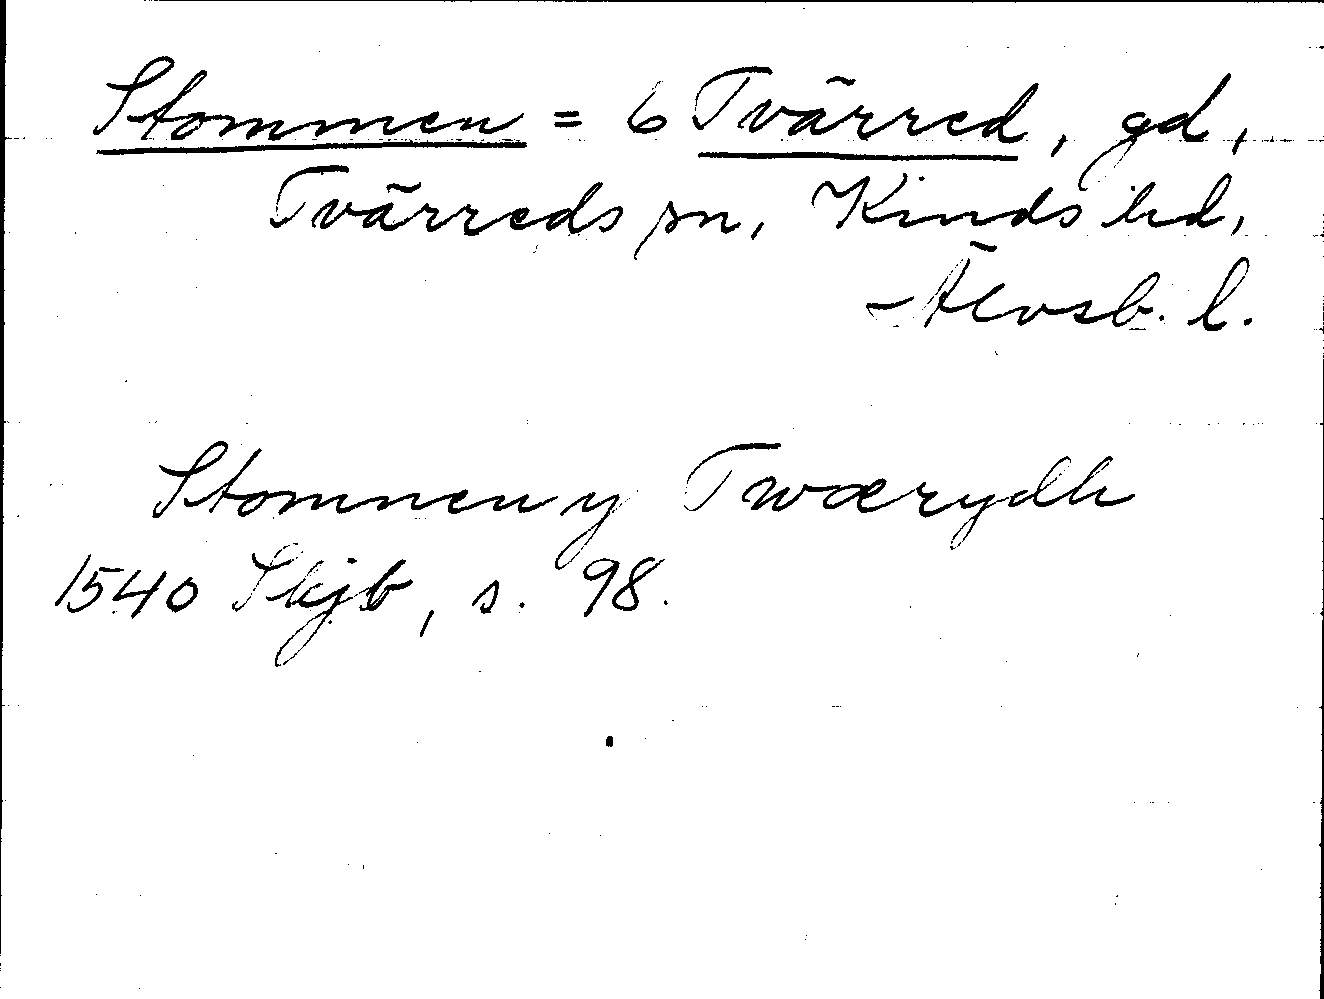 Stommen = 6 Tvärred, gd,
Tvärreds sn, Kinds hd,
Älvsb. l.
Stomnen y Twærydh
1540 Skjb, s. 98.